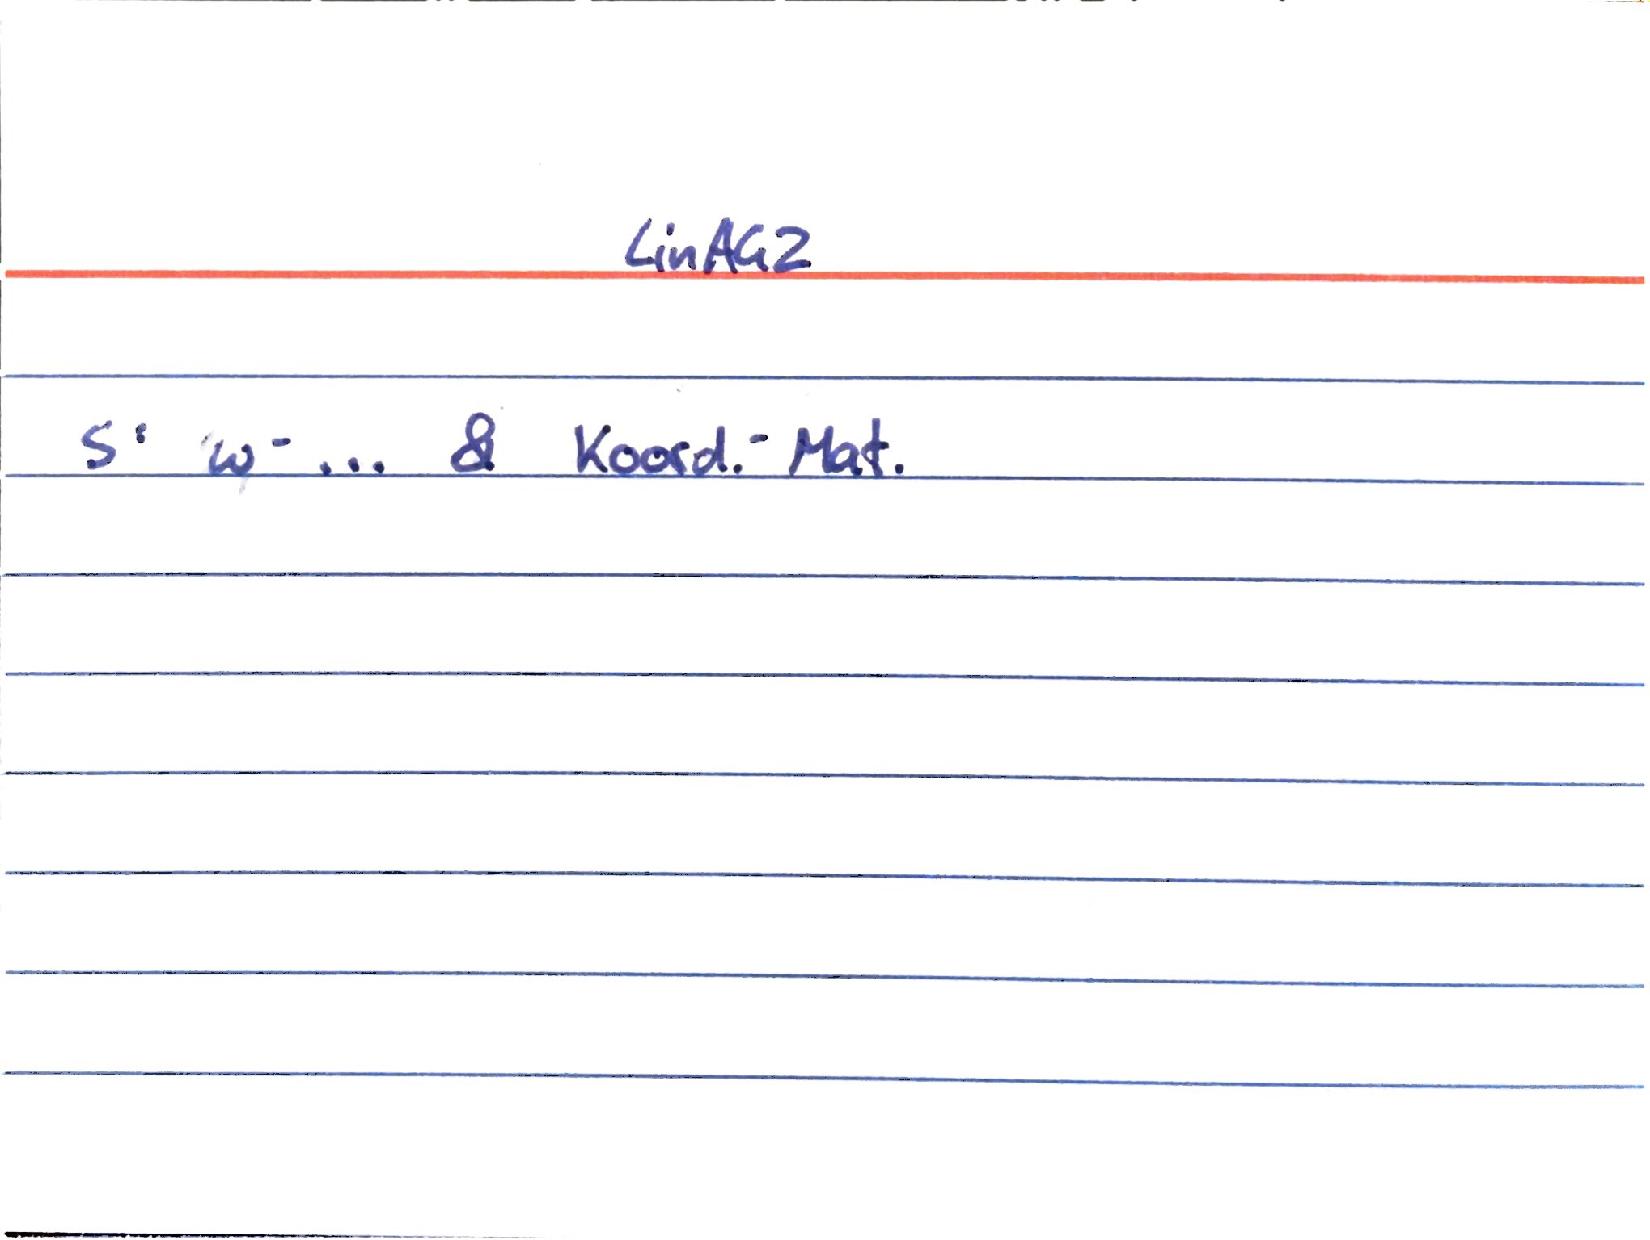 LinAG2
S: w-... & Koord.-Mat.